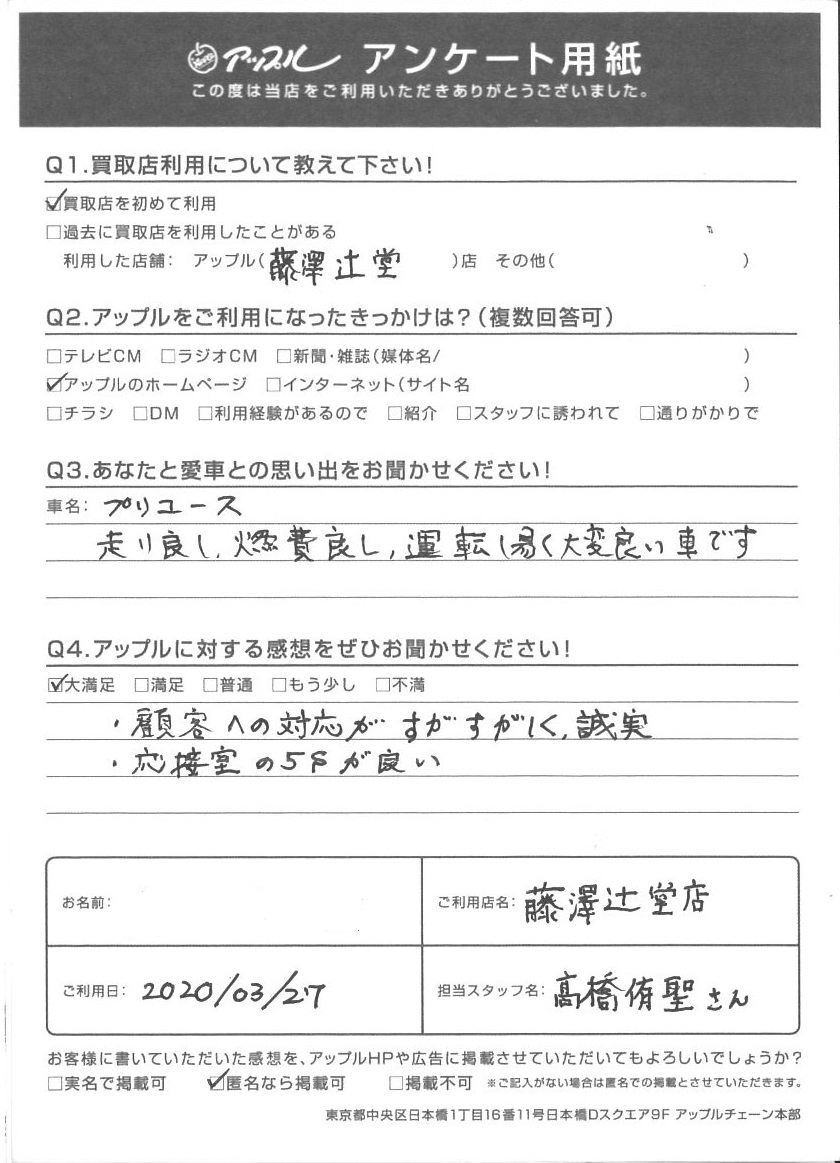 アップル アンケート用紙
この度は当店をご利用いただきありがとうございました。
Q1.買取店利用について教えて下さい!
☑買取店を初めて利用
□過去に買取店を利用したことがある
利用した店舗: アップル(藤澤辻堂)店 その他( )
Q2.アップルをご利用になったきっかけは?(複数回答可)
□テレビCM □ラジオCM □新聞・雑誌(媒体名/ )
☑アップルのホームページ □インターネット(サイト名 )
□チラシ □DM □利用経験があるので □紹介 □スタッフに誘われて □通りがかりで
Q3.あなたと愛車との思い出をお聞かせください!
車名: プリユース
走り良し,燃費良し,運転し易く大変良い車です
Q4.アップルに対する感想をぜひお聞かせください!
☑大満足 □満足 □普通 □もう少し □不満
・顧客への対応がすがすがしく,誠実
・応接室の5Sが良い
お名前:
ご利用店名: 藤澤辻堂店
ご利用日: 2020/03/27
担当スタッフ名: 高橋侑聖さん
お客様に書いていただいた感想を、アップルHPや広告に掲載させていただいてもよろしいでしょうか?
□実名で掲載可 ☑匿名なら掲載可 □掲載不可 ※ご記入がない場合は匿名での掲載とさせていただきます。
東京都中央区日本橋1丁目16番11号日本橋Dスクエア9F アップルチェーン本部